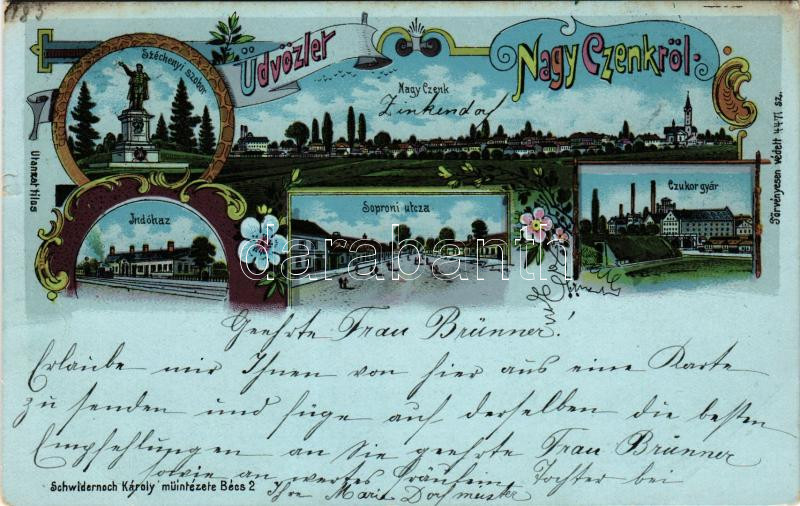 1183
Üdvözlet
Nagy Czenkröl.
Széchenyi szobor
Nagy Czenk
Zinkendorf
Utánzat tilos
Törvényesen védett 4471 sz.
Indóház
Soproni utcza
Czukorgyár
darabanth
Geehrte Frau Brünner!
Erlaube mir Ihnen von hier aus eine Karte
zu senden und füge auf derselben die besten
Empfehlungen an Sie geehrte Frau Brünner
sowie an wertes Fräulein Tochter bei
Ihre Marie Dorfmuster
Schwidernoch Károly müintézete Bécs 2